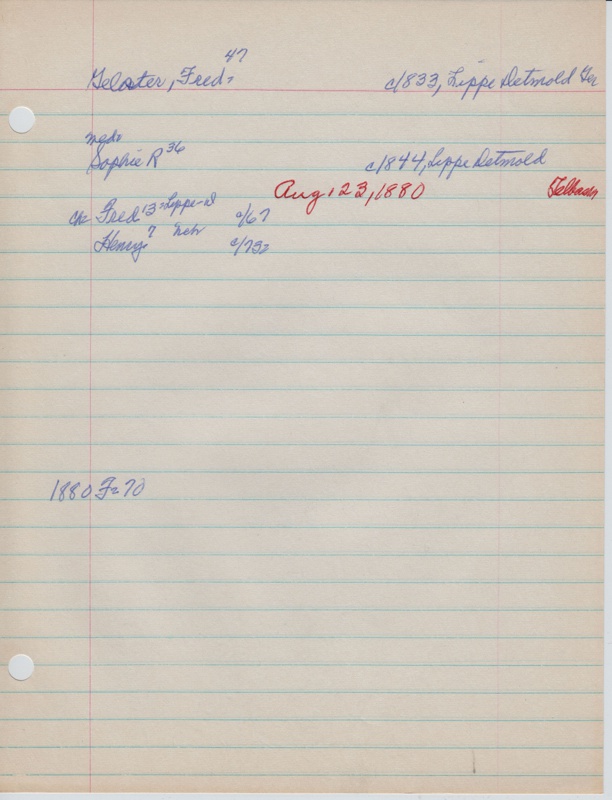 Gelster, Fred, 47 c/833, Lippe Detmold Ger
mgd:
Sophie R 36 c/844, Lippe Detmold
Aug 23, 1880
Ch: Fred 13 Lippe-d c/67
Henry 7 Neb c/73
1880 F 70